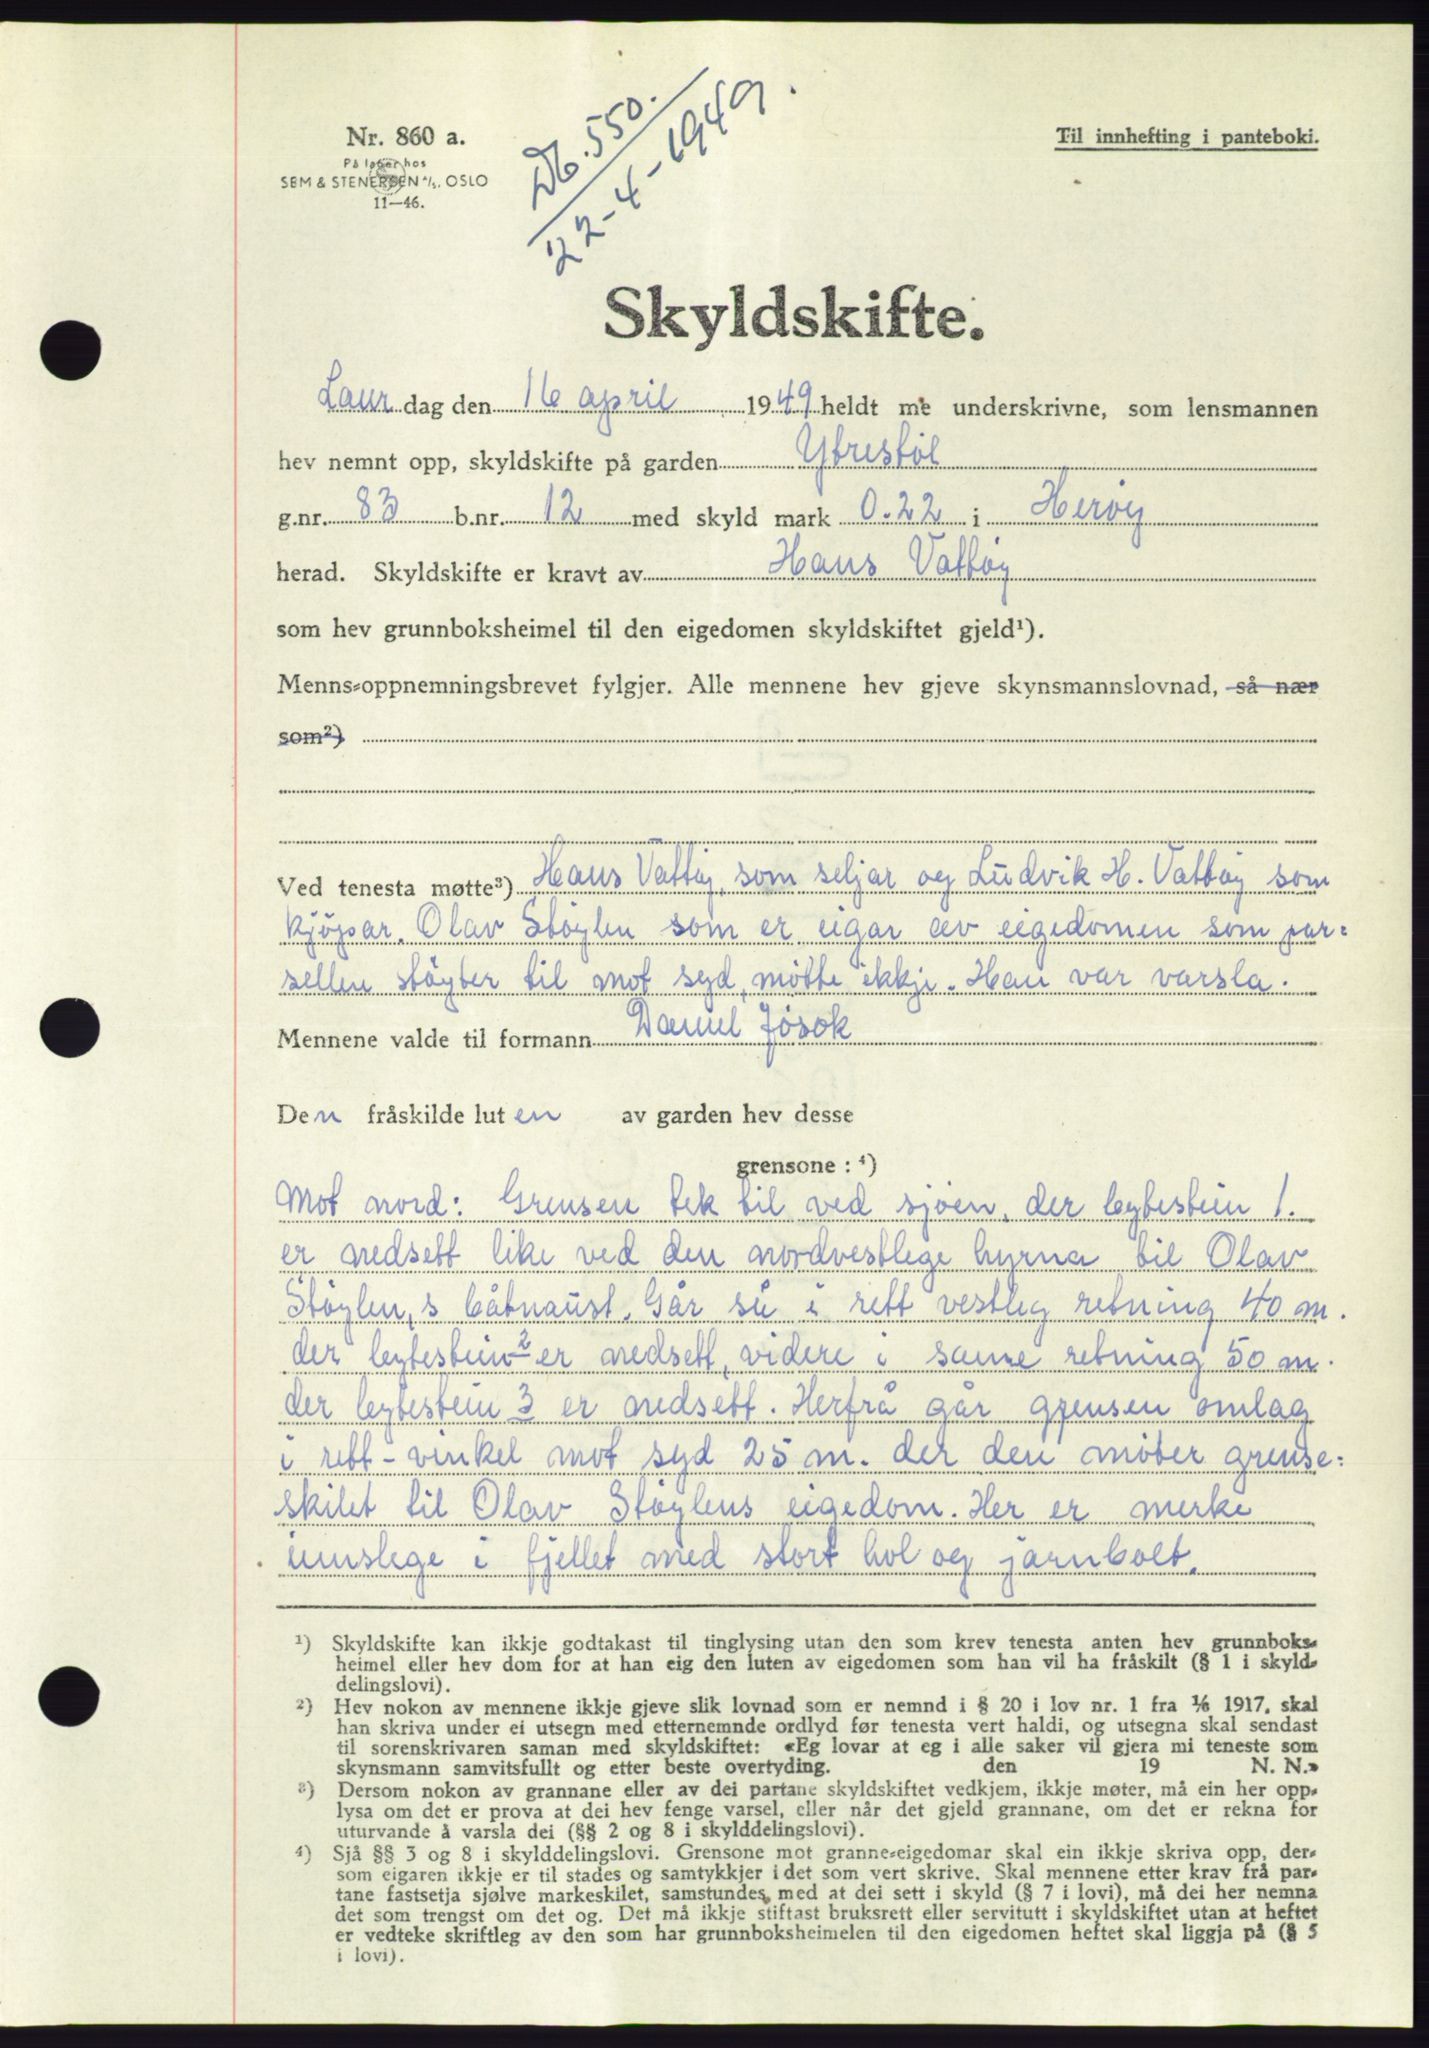 Nr. 860 a.
På lager hos
SEM & STENERSEN A/S. OSLO
11—46.
Db. 550.
22-4-1949.
Til innhefting i panteboki.
Skyldskifte.
Laur dag den 16 april 1949 heldt me underskrivne, som lensmannen
hev nemnt opp, skyldskifte på garden Ytrestöl
g.nr. 83 b.nr. 12 med skyld mark 0.22 i Heröy
herad. Skyldskifte er kravt av Hans Vattöy
som hev grunnboksheimel til den eigedomen skyldskiftet gjeld¹).
Menns-oppnemningsbrevet fylgjer. Alle mennene hev gjeve skynsmannslovnad, så nær
som²)
Ved tenesta møtte³) Hans Vattöy, som seljar og Ludvik H. Vattöy som
kjöpar. Olav Stöylen som er eigar av eigedomen som par=
sellen stöyter til mot syd, mötte ikkje. Han var varsla.
Mennene valde til formann Daniel Jösok
Den fråskilde luten av garden hev desse
grensone : ⁴)
Mot nord: Grensen tek til ved sjöen, der bytestein 1.
er nedsett like ved den nordvestlege hyrna til Olav
Stöylen,s båtnaust. Går så i rett vestleg retning 40 m.
der bytestein 2 er nedsett, videre i same retning 50 m.
der bytestein 3 er nedsett. Herfrå går grensen omlag
i rett-vinkel mot syd 25 m. der den möter grense=
skilet til Olav Stöylens eigedom. Her er merke
innslege i fjellet med stort hol og jarnbolt.
¹) Skyldskifte kan ikkje godtakast til tinglysing utan den som krev tenesta anten hev grunnboks-
heimel eller hev dom for at han eig den luten av eigedomen som han vil ha fråskilt (§ 1 i skyld-
delingslovi).
²) Hev nokon av mennene ikkje gjeve slik lovnad som er nemnd i § 20 i lov nr. 1 fra ⅙ 1917, skal
han skriva under ei utsegn med etternemnde ordlyd før tenesta vert haldi, og utsegna skal sendast
til sorenskrivaren saman med skyldskiftet: «Eg lovar at eg i alle saker vil gjera mi teneste som
skynsmann samvitsfullt og etter beste overtyding. den 19 N. N.»
³) Dersom nokon av grannane eller av dei partane skyldskiftet vedkjem, ikkje møter, må ein her opp-
lysa om det er prova at dei hev fenge varsel, eller når det gjeld grannane, om det er rekna for
uturvande å varsla dei (§§ 2 og 8 i skylddelingslovi).
⁴) Sjå §§ 3 og 8 i skylddelingslovi. Grensone mot granne-eigedomar skal ein ikkje skriva opp, der-
som eigaren ikkje er til stades og samtykkjer i det som vert skrive. Skal mennene etter krav frå par-
tane fastsetja sjølve markeskilet, samstundes med at dei sett i skyld (§ 7 i lovi), må dei her nemna
det som trengst om det og. Det må ikkje stiftast bruksrett eller servitutt i skyldskiftet utan at heftet
er vedteke skriftleg av den som har grunnboksheimelen til den eigedomen heftet skal liggja på (§ 5
i lovi).